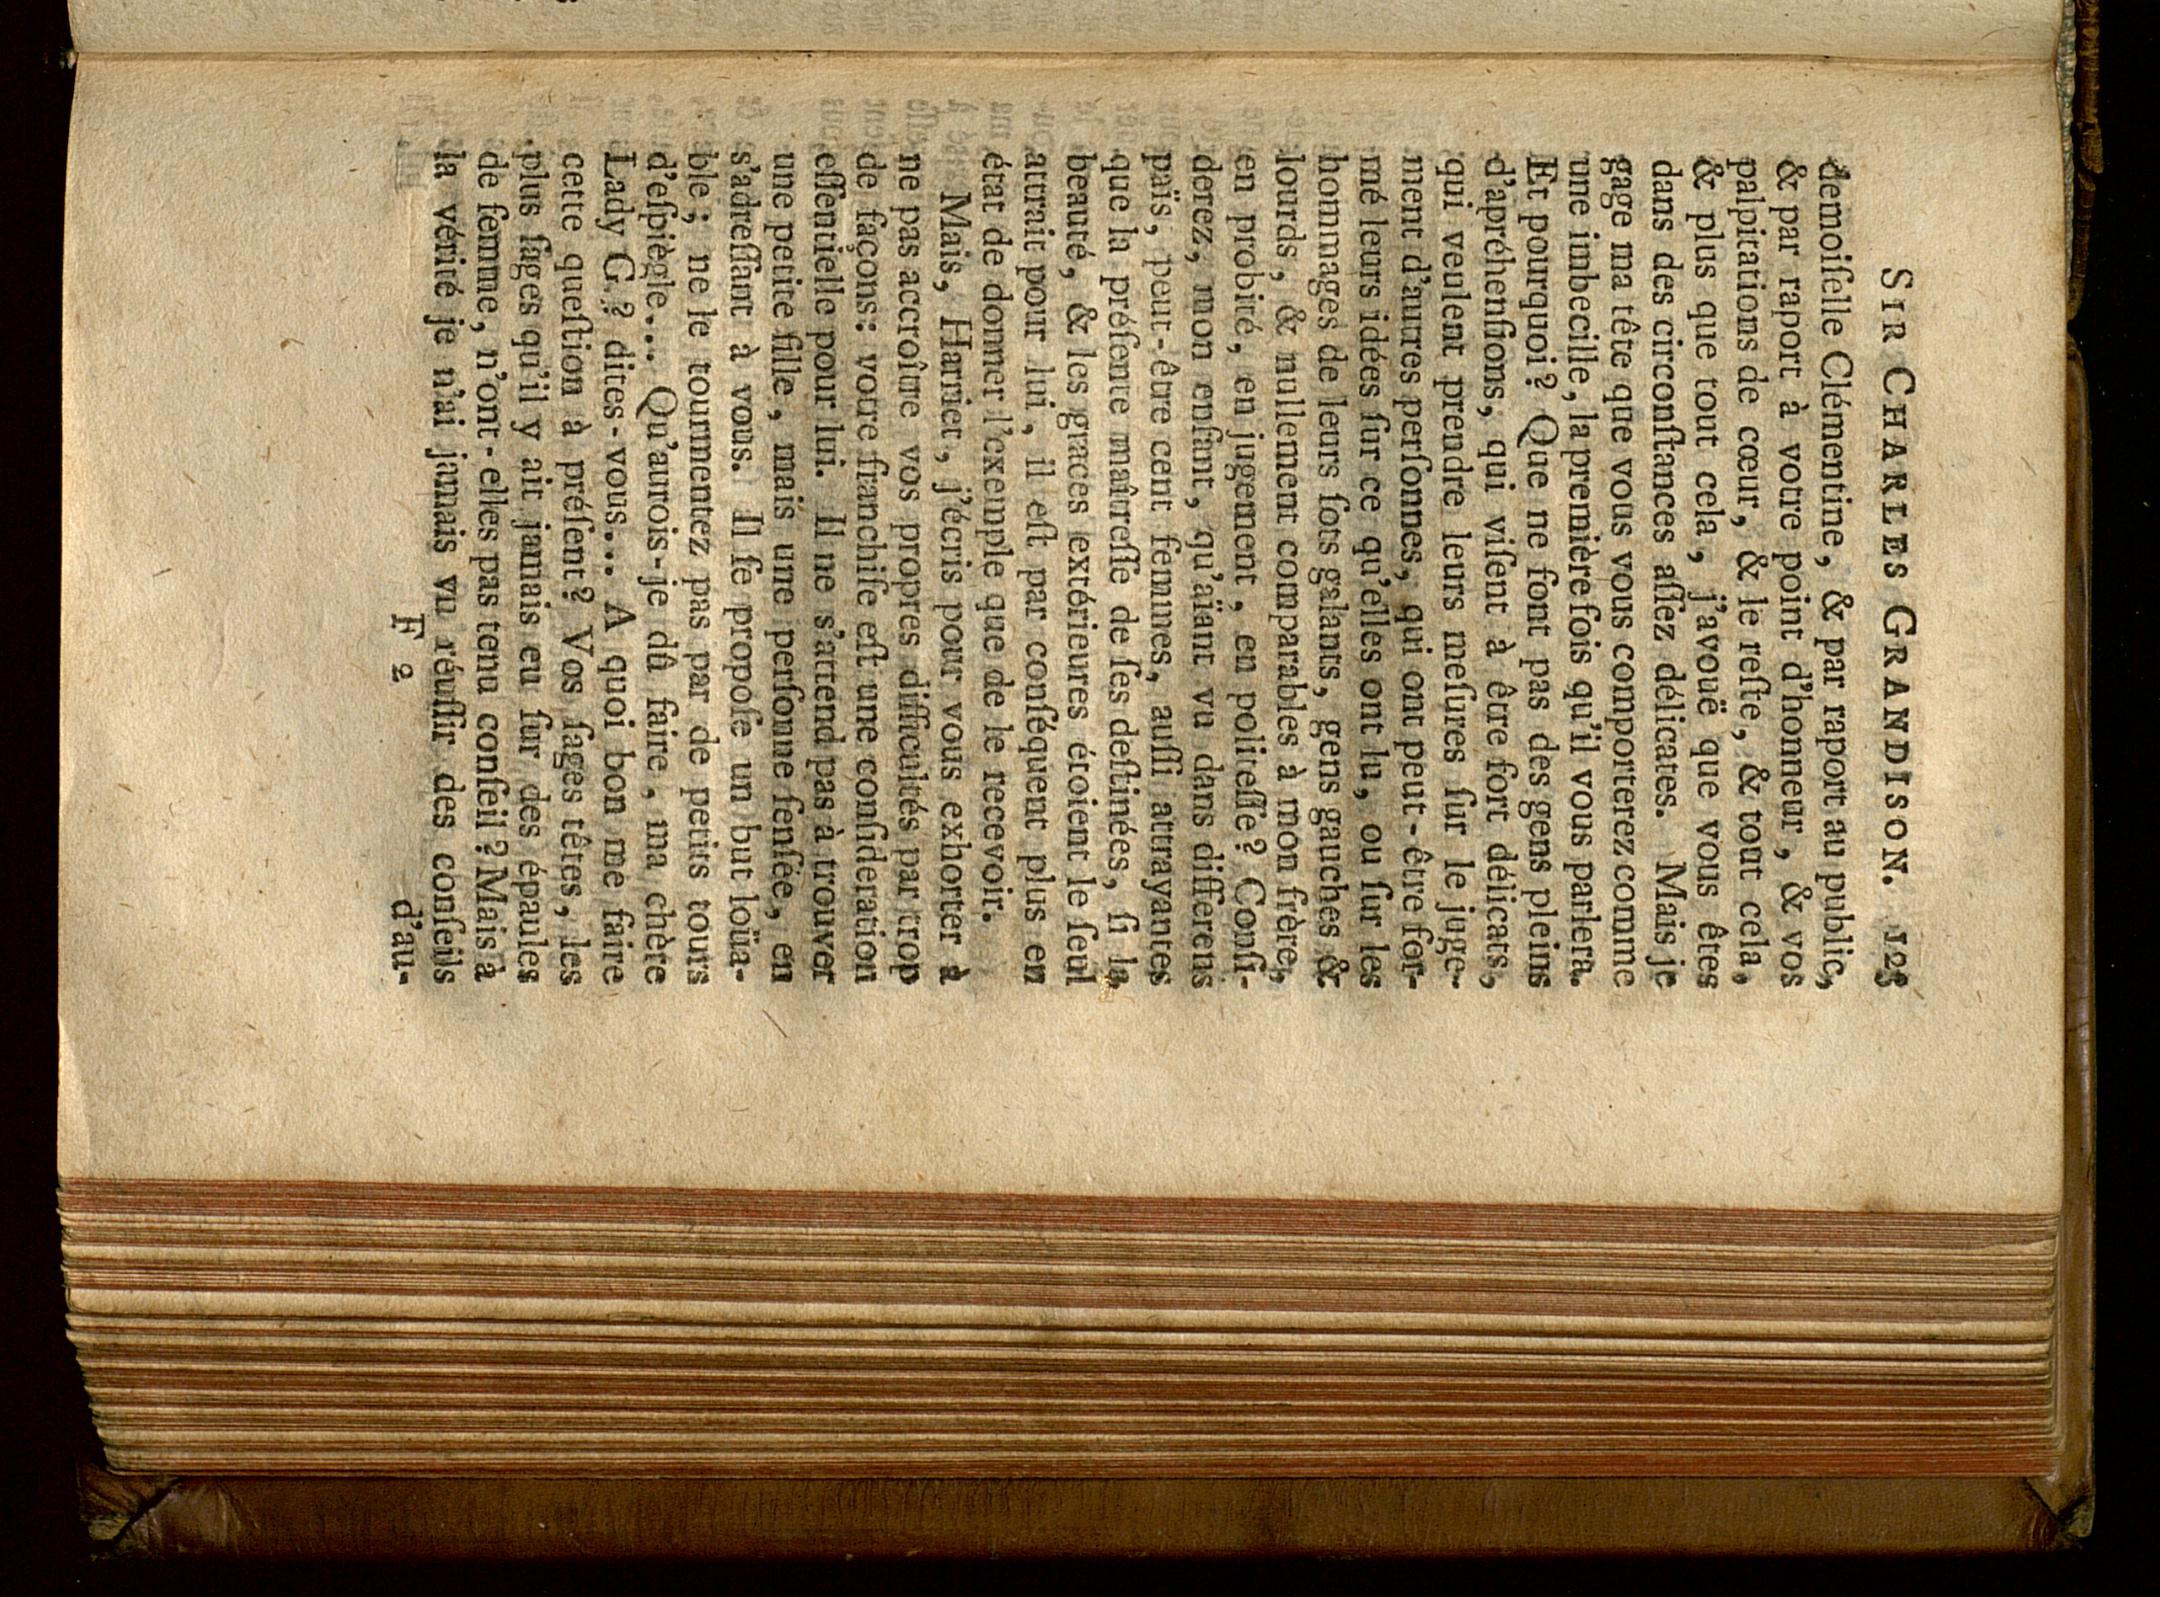 SIR CHARLES GRANDISON. 123
demoiſelle Clémentine, & par raport au public,
& par raport à votre point d'honneur, & vos
palpitations de cœur, & le reſte, & tout cela,
& plus que tout cela, j'avouë que vous êtes
dans des circonſtances aſſez délicates. Mais je
gage ma tête que vous vous comporterez comme
une imbecille, la première fois qu'il vous parlera.
Et pourquoi? Que ne ſont pas des gens pleins
d'apréhenſions, qui viſent à être fort délicats,
qui veulent prendre leurs meſures ſur le juge-
ment d'autres perſonnes, qui ont peut-être for-
mé leurs idées ſur ce qu'elles ont lu, ou ſur les
hommages de leurs ſots galants, gens gauches &
lourds, & nullement comparables à mon frère,
en probité, en jugement, en politeſſe? Conſi-
derez, mon enfant, qu'aïant vu dans differens
païs, peut-être cent femmes, auſſi attrayantes
que la préſente maîtreſſe de ſes deſtinées, ſi la
beauté, & les graces extérieures étoient le ſeul
attrait pour lui, il eſt par conſéquent plus en
état de donner l'exemple que de le recevoir.
Mais, Harriet, j'écris pour vous exhorter à
ne pas accroître vos propres difficultés par trop
de façons: votre franchiſe eſt une conſideration
eſſentielle pour lui. Il ne s'attend pas à trouver
une petite fille, mais une perſonne ſenſée, en
s'adreſſant à vous. Il ſe propoſe un but loüa-
ble; ne le tourmentez pas par de petits tours
d'eſpiègle... Qu'aurois-je dû faire, ma chère
Lady G.? dites-vous... A quoi bon me faire
cette queſtion à préſent? Vos ſages têtes, les
plus ſages qu'il y ait jamais eu ſur des épaules
de femme, n'ont-elles pas tenu conſeil? Mais à
la vérité je n'ai jamais vu réuſſir des conſeils
F 2 d'au-